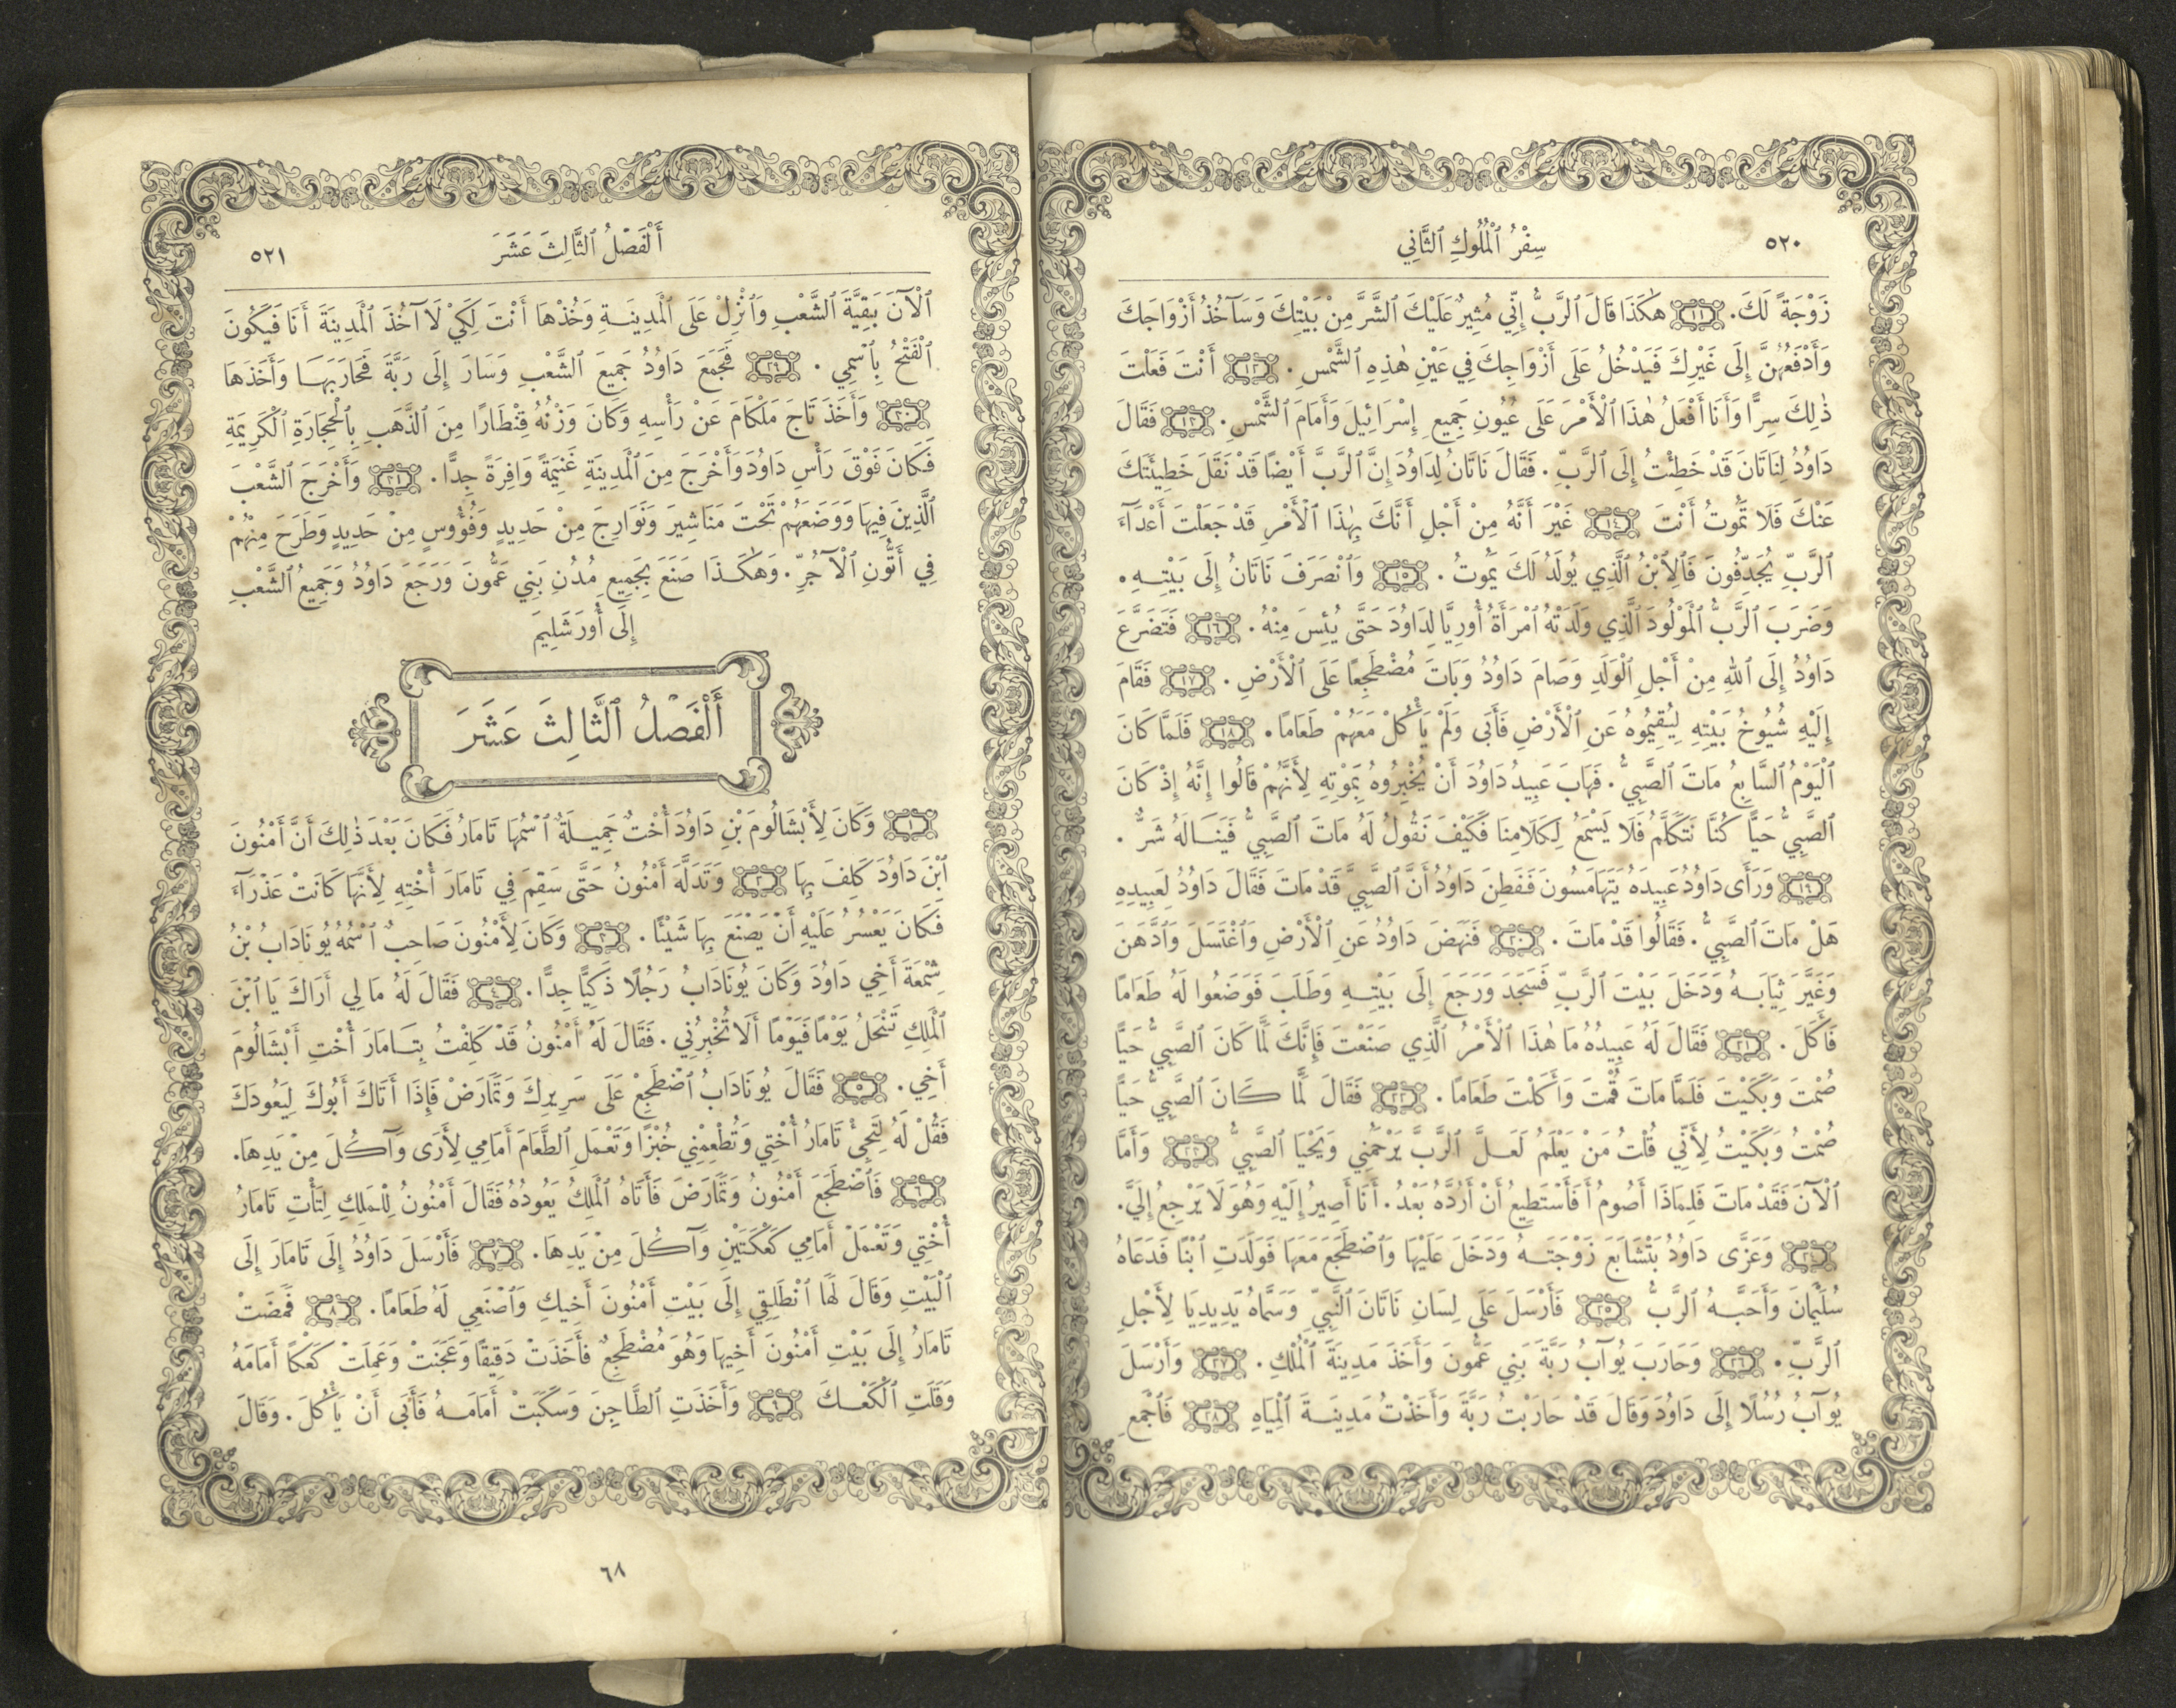 ٥٢٠
سِفْرُ ٱلْمُلُوكِ ٱلثَّانِي
زَوْجَةً لَكَ. ١١ هٰكَذَا قَالَ ٱلرَّبُّ إِنِّي مُثِيرٌ عَلَيْكَ ٱلشَّرَّ مِنْ بَيْتِكَ وَسَآخُذُ أَزْوَاجَكَ
وَأَدْفَعُهُنَّ إِلَى غَيْرِكَ فَيَدْخُلُ عَلَى أَزْوَاجِكَ فِي عَيْنِ هٰذِهِ ٱلشَّمْسِ. ١٢ أَنْتَ فَعَلْتَ
ذٰلِكَ سِرًّا وَأَنَا أَفْعَلُ هٰذَا ٱلْأَمْرَ عَلَى عُيُونِ جَمِيعِ إِسْرَائِيلَ وَأَمَامَ ٱلشَّمْسِ. ١٣ فَقَالَ
دَاوُدُ لِنَاتَانَ قَدْ خَطِئْتُ إِلَى ٱلرَّبِّ. فَقَالَ نَاتَانُ لِدَاوُدَ إِنَّ ٱلرَّبَّ أَيْضًا قَدْ نَقَلَ خَطِيئَتَكَ
عَنْكَ فَلَا تَمُوتُ أَنْتَ ١٤ غَيْرَ أَنَّهُ مِنْ أَجْلِ أَنَّكَ بِهٰذَا ٱلْأَمْرِ قَدْ جَعَلْتَ أَعْدَآءَ
ٱلرَّبِّ يُجَدِّفُونَ فَٱلِٱبْنُ ٱلَّذِي يُولَدُ لَكَ يَمُوتُ. ١٥ وَٱنْصَرَفَ نَاتَانُ إِلَى بَيْتِهِ.
وَضَرَبَ ٱلرَّبُّ ٱلْمَوْلُودَ ٱلَّذِي وَلَدَتْهُ ٱمْرَأَةُ أُورِيَّا لِدَاوُدَ حَتَّى يُئِسَ مِنْهُ. ١٦ فَتَضَرَّعَ
دَاوُدُ إِلَى ٱللهِ مِنْ أَجْلِ ٱلْوَلَدِ وَصَامَ دَاوُدُ وَبَاتَ مُضْطَجِعًا عَلَى ٱلْأَرْضِ. ١٧ فَقَامَ
إِلَيْهِ شُيُوخُ بَيْتِهِ لِيُقِيمُوهُ عَنِ ٱلْأَرْضِ فَأَبَى وَلَمْ يَأْكُلْ مَعَهُمْ طَعَامًا. ١٨ فَلَمَّا كَانَ
ٱلْيَوْمُ ٱلسَّابِعُ مَاتَ ٱلصَّبِيُّ. فَهَابَ عَبِيدُ دَاوُدَ أَنْ يُخْبِرُوهُ بِمَوْتِهِ لِأَنَّهُمْ قَالُوا إِنَّهُ إِذْ كَانَ
ٱلصَّبِيُّ حَيًّا كُنَّا نَتَكَلَّمُ فَلَا يَسْمَعُ لِكَلَامِنَا فَكَيْفَ نَقُولُ لَهُ مَاتَ ٱلصَّبِيُّ فَيَنَالَهُ شَرٌّ.
١٩ وَرَأَى دَاوُدُ عَبِيدَهُ يَتَهَامَسُونَ فَفَطِنَ دَاوُدُ أَنَّ ٱلصَّبِيَّ قَدْ مَاتَ فَقَالَ دَاوُدُ لِعَبِيدِهِ
هَلْ مَاتَ ٱلصَّبِيُّ. فَقَالُوا قَدْ مَاتَ. ٢٠ فَنَهَضَ دَاوُدُ عَنِ ٱلْأَرْضِ وَٱغْتَسَلَ وَٱدَّهَنَ
وَغَيَّرَ ثِيَابَهُ وَدَخَلَ بَيْتَ ٱلرَّبِّ فَسَجَدَ وَرَجَعَ إِلَى بَيْتِهِ وَطَلَبَ فَوَضَعُوا لَهُ طَعَامًا
فَأَكَلَ. ٢١ فَقَالَ لَهُ عَبِيدُهُ مَا هٰذَا ٱلْأَمْرُ ٱلَّذِي صَنَعْتَ فَإِنَّكَ لَمَّا كَانَ ٱلصَّبِيُّ حَيًّا
صُمْتَ وَبَكَيْتَ فَلَمَّا مَاتَ قُمْتَ وَأَكَلْتَ طَعَامًا. ٢٢ فَقَالَ لَمَّا كَانَ ٱلصَّبِيُّ حَيًّا
صُمْتُ وَبَكَيْتُ لِأَنِّي قُلْتُ مَنْ يَعْلَمُ لَعَلَّ ٱلرَّبَّ يَرْحَمُنِي وَيَحْيَا ٱلصَّبِيُّ ٢٣ وَأَمَّا
ٱلْآنَ فَقَدْ مَاتَ فَلِمَاذَا أَصُومُ أَفَأَسْتَطِيعُ أَنْ أَرُدَّهُ بَعْدُ. أَنَا أَصِيرُ إِلَيْهِ وَهُوَ لَا يَرْجِعُ إِلَيَّ.
٢٤ وَعَزَّى دَاوُدُ بَتْشَابَعَ زَوْجَتَهُ وَدَخَلَ عَلَيْهَا وَٱضْطَجَعَ مَعَهَا فَوَلَدَتِ ٱبْنًا فَدَعَاهُ
سُلَيْمَانَ وَأَحَبَّهُ ٱلرَّبُّ ٢٥ فَأَرْسَلَ عَلَى لِسَانِ نَاتَانَ ٱلنَّبِيِّ وَسَمَّاهُ يَدِيدِيَا لِأَجْلِ
ٱلرَّبِّ. ٢٦ وَحَارَبَ يُوآبُ رَبَّةَ بَنِي عَمُّونَ وَأَخَذَ مَدِينَةَ ٱلْمُلْكِ. ٢٧ وَأَرْسَلَ
يُوآبُ رُسُلًا إِلَى دَاوُدَ وَقَالَ قَدْ حَارَبْتُ رَبَّةَ وَأَخَذْتُ مَدِينَةَ ٱلْمِيَاهِ ٢٨ فَٱجْمَعِ
أَلْفَصْلُ ٱلثَّالِثَ عَشَرَ
٥٢١
ٱلْآنَ بَقِيَّةَ ٱلشَّعْبِ وَٱنْزِلْ عَلَى ٱلْمَدِينَةِ وَخُذْهَا أَنْتَ لِكَيْ لَا آخُذَ ٱلْمَدِينَةَ أَنَا فَيَكُونَ
ٱلْفَتْحُ بِٱسْمِي. ٢٩ فَجَمَعَ دَاوُدُ جَمِيعَ ٱلشَّعْبِ وَسَارَ إِلَى رَبَّةَ فَحَارَبَهَا وَأَخَذَهَا
٣٠ وَأَخَذَ تَاجَ مَلْكَامَ عَنْ رَأْسِهِ وَكَانَ وَزْنُهُ قِنْطَارًا مِنَ ٱلذَّهَبِ بِٱلْحِجَارَةِ ٱلْكَرِيمَةِ
فَكَانَ فَوْقَ رَأْسِ دَاوُدَ وَأَخْرَجَ مِنَ ٱلْمَدِينَةِ غَنِيمَةً وَافِرَةً جِدًّا. ٣١ وَأَخْرَجَ ٱلشَّعْبَ
ٱلَّذِينَ فِيهَا وَوَضَعَهُمْ تَحْتَ مَنَاشِيرَ وَنَوَارِجَ مِنْ حَدِيدٍ وَفُؤُوسٍ مِنْ حَدِيدٍ وَطَرَحَ مِنْهُمْ
فِي أَتُّونِ ٱلْآجُرِّ. وَهٰكَذَا صَنَعَ بِجَمِيعِ مُدُنِ بَنِي عَمُّونَ وَرَجَعَ دَاوُدُ وَجَمِيعُ ٱلشَّعْبِ
إِلَى أُورَشَلِيمَ
أَلْفَصْلُ ٱلثَّالِثَ عَشَرَ
١ وَكَانَ لِأَبْشَالُومَ بْنِ دَاوُدَ أُخْتٌ جَمِيلَةٌ ٱسْمُهَا تَامَارُ فَكَانَ بَعْدَ ذٰلِكَ أَنَّ أَمْنُونَ
ٱبْنَ دَاوُدَ كَلِفَ بِهَا ٢ وَتَدَلَّهَ أَمْنُونُ حَتَّى سَقِمَ فِي تَامَارَ أُخْتِهِ لِأَنَّهَا كَانَتْ عَذْرَآءَ
فَكَانَ يَعْسُرُ عَلَيْهِ أَنْ يَصْنَعَ بِهَا شَيْئًا. ٣ وَكَانَ لِأَمْنُونَ صَاحِبٌ ٱسْمُهُ يُونَادَابُ بْنُ
شِمْعَةَ أَخِي دَاوُدَ وَكَانَ يُونَادَابُ رَجُلًا ذَكِيًّا جِدًّا. ٤ فَقَالَ لَهُ مَا لِي أَرَاكَ يَا ٱبْنَ
ٱلْمَلِكِ تَنْحَلُ يَوْمًا فَيَوْمًا أَلَا تُخْبِرُنِي. فَقَالَ لَهُ أَمْنُونُ قَدْ كَلِفْتُ بِتَامَارَ أُخْتِ أَبْشَالُومَ
أَخِي. ٥ فَقَالَ يُونَادَابُ ٱضْطَجِعْ عَلَى سَرِيرِكَ وَتَمَارَضْ فَإِذَا أَتَاكَ أَبُوكَ لِيَعُودَكَ
فَقُلْ لَهُ لِتَجِئْ تَامَارُ أُخْتِي وَتُطْعِمْنِي خُبْزًا وَتَعْمَلِ ٱلطَّعَامَ أَمَامِي لِأَرَى وَآكُلَ مِنْ يَدِهَا.
٦ فَٱضْطَجَعَ أَمْنُونُ وَتَمَارَضَ فَأَتَاهُ ٱلْمَلِكُ يَعُودُهُ فَقَالَ أَمْنُونُ لِلْمَلِكِ لِتَأْتِ تَامَارُ
أُخْتِي وَتَعْمَلْ أَمَامِي كَعْكَتَيْنِ وَآكُلَ مِنْ يَدِهَا. ٧ فَأَرْسَلَ دَاوُدُ إِلَى تَامَارَ إِلَى
ٱلْبَيْتِ وَقَالَ لَهَا ٱنْطَلِقِي إِلَى بَيْتِ أَمْنُونَ أَخِيكِ وَٱصْنَعِي لَهُ طَعَامًا. ٨ فَمَضَتْ
تَامَارُ إِلَى بَيْتِ أَمْنُونَ أَخِيهَا وَهُوَ مُضْطَجِعٌ فَأَخَذَتْ دَقِيقًا وَعَجَنَتْ وَعَمِلَتْ كَعْكًا أَمَامَهُ
وَقَلَتِ ٱلْكَعْكَ ٩ وَأَخَذَتِ ٱلطَّاجِنَ وَسَكَبَتْ أَمَامَهُ فَأَبَى أَنْ يَأْكُلَ. وَقَالَ
٦٨